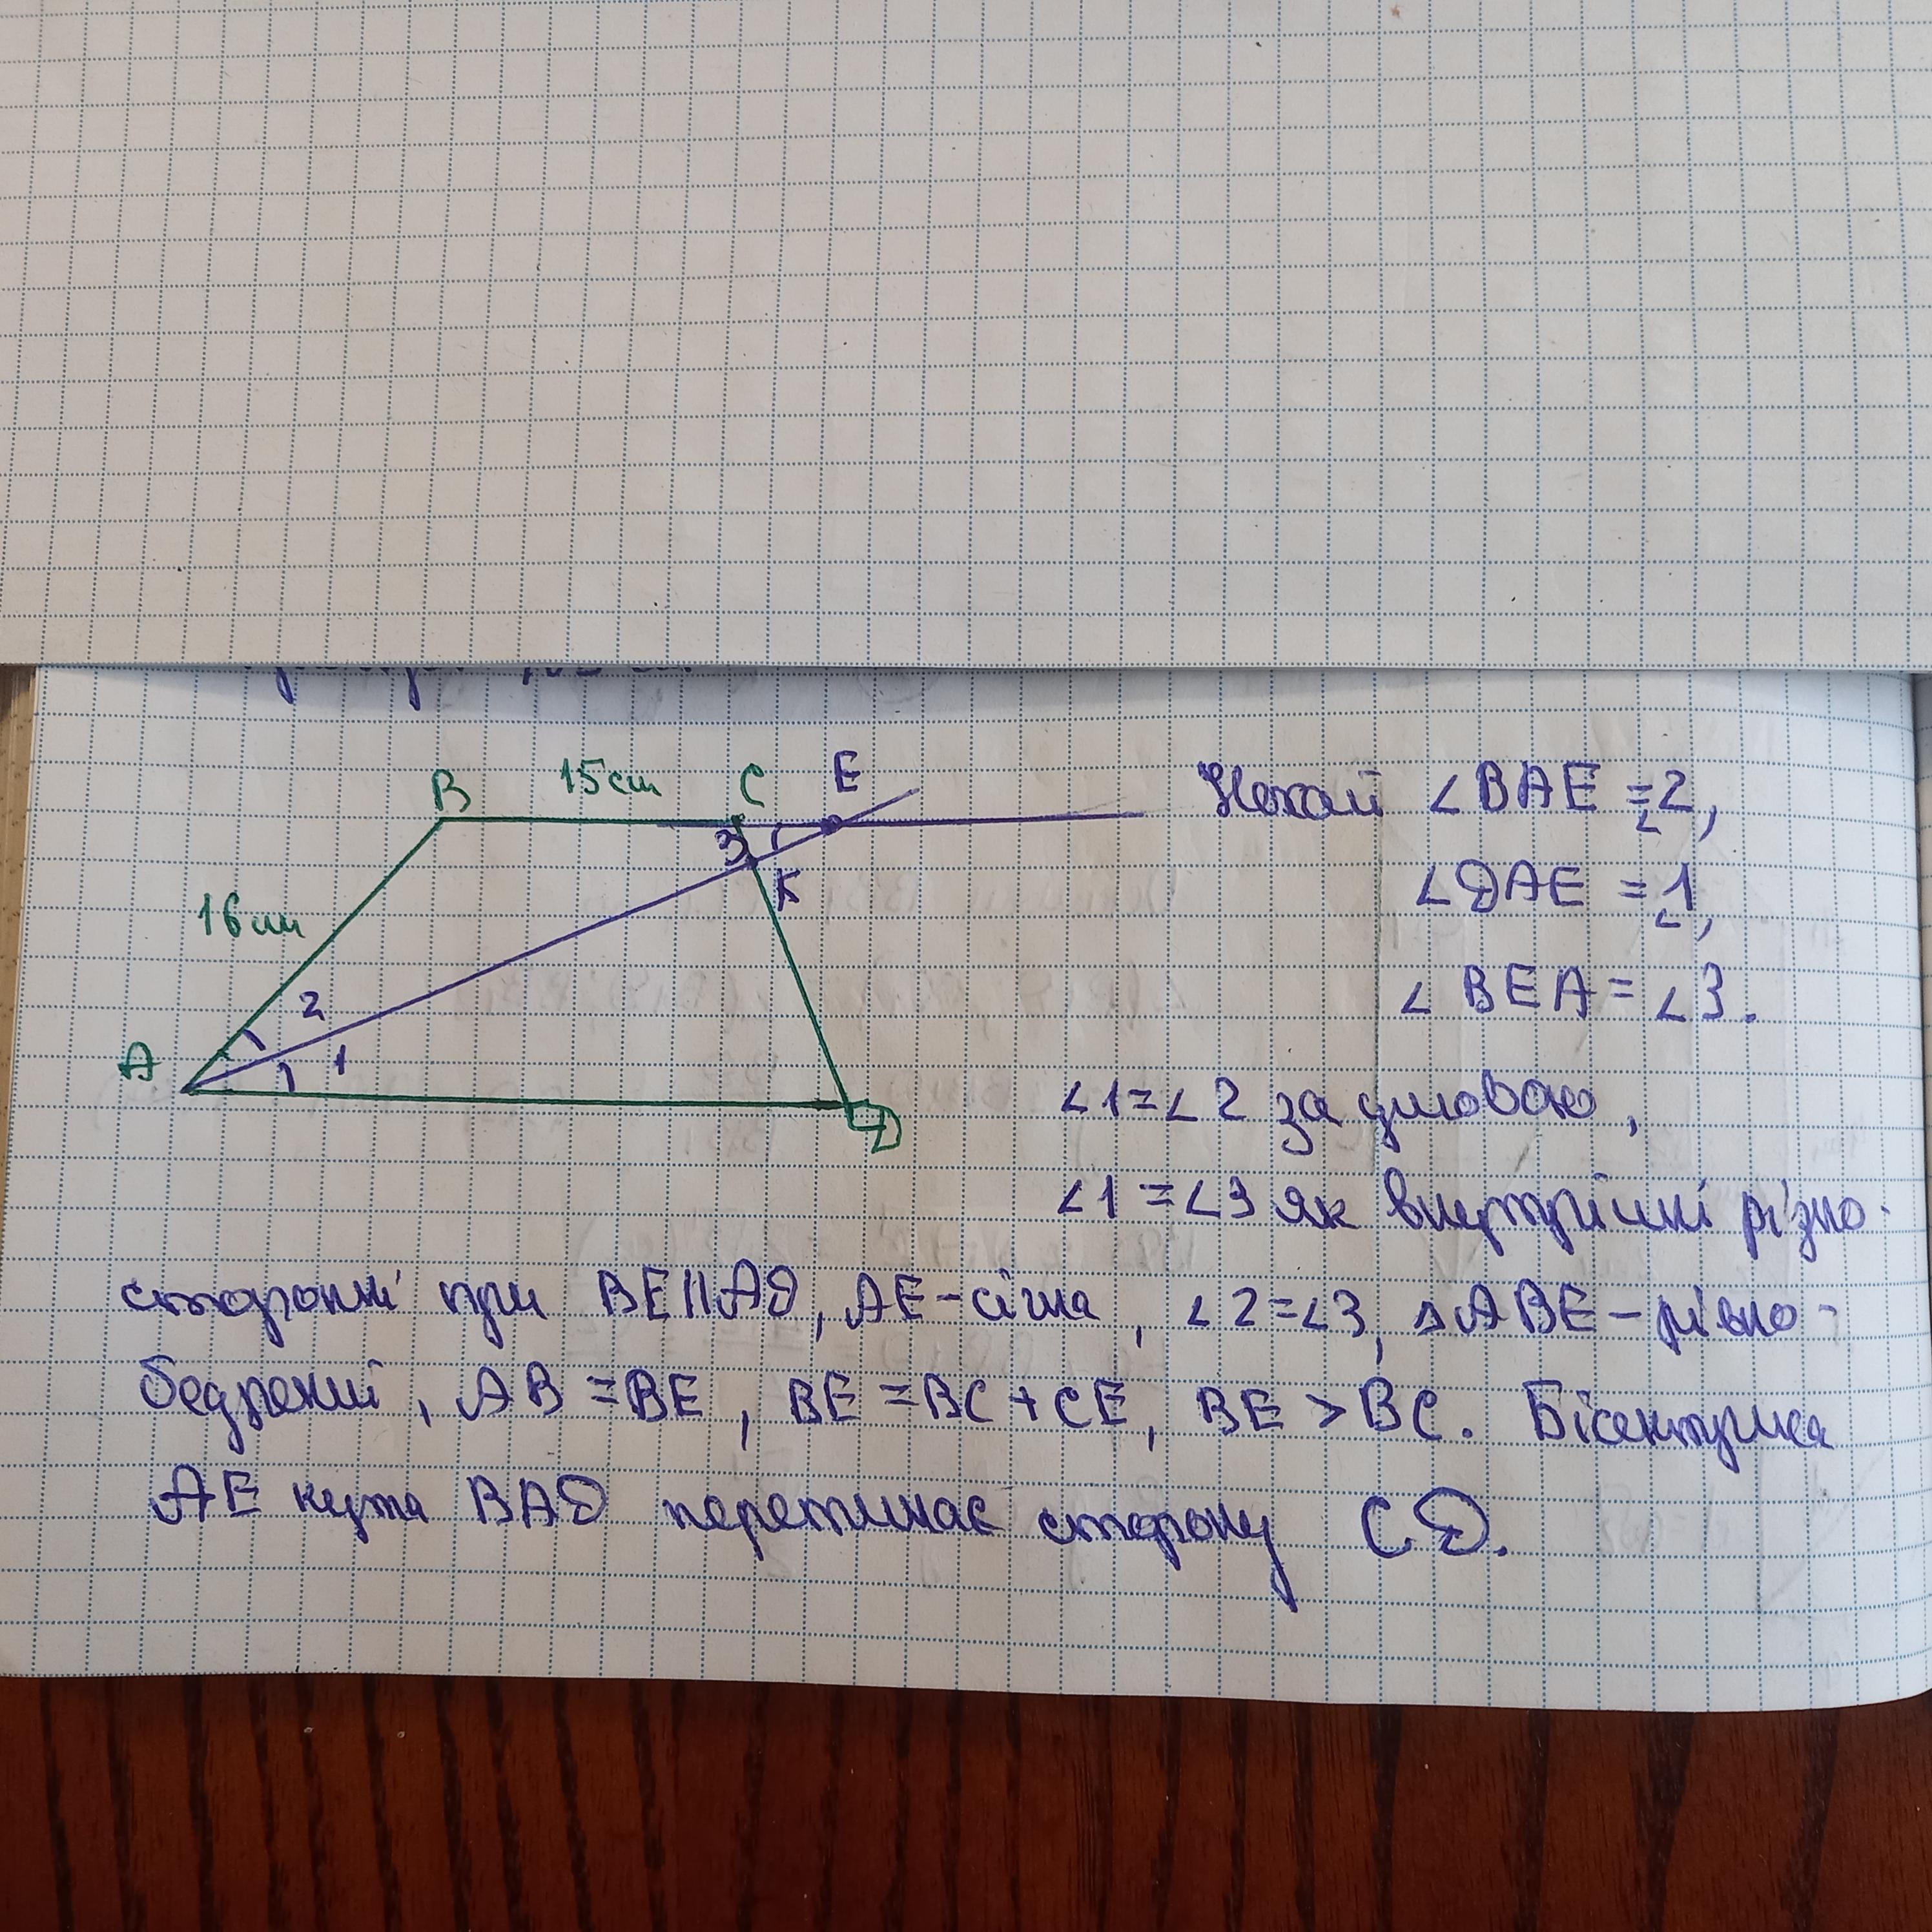 B 15 см C E
Нехай ∠BAE = ∠2,
16 см
3
K
∠DAE = ∠1,
∠BEA = ∠3.
2
1
A
D
∠1 = ∠2 за умовою,
∠1 = ∠3 як внутрішні різно-
сторонні при BE||AD, AE - січна, ∠2=∠3, △ABE - рівно-
бедрений, AB = BE, BE = BC + CE, BE > BC. Бісектриса
AE кута BAD перетинає сторону CD.